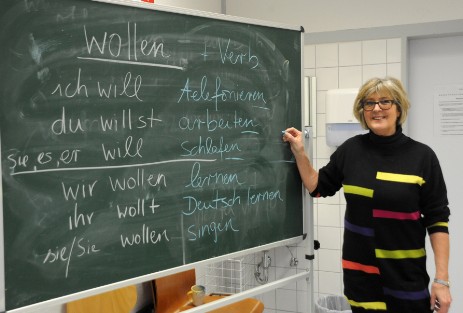 wollen + Verb
ich will telefonieren
du willst arbeiten
sie, es, er will schlafen
wir wollen lernen
ihr wollt Deutsch lernen
sie/Sie wollen singen